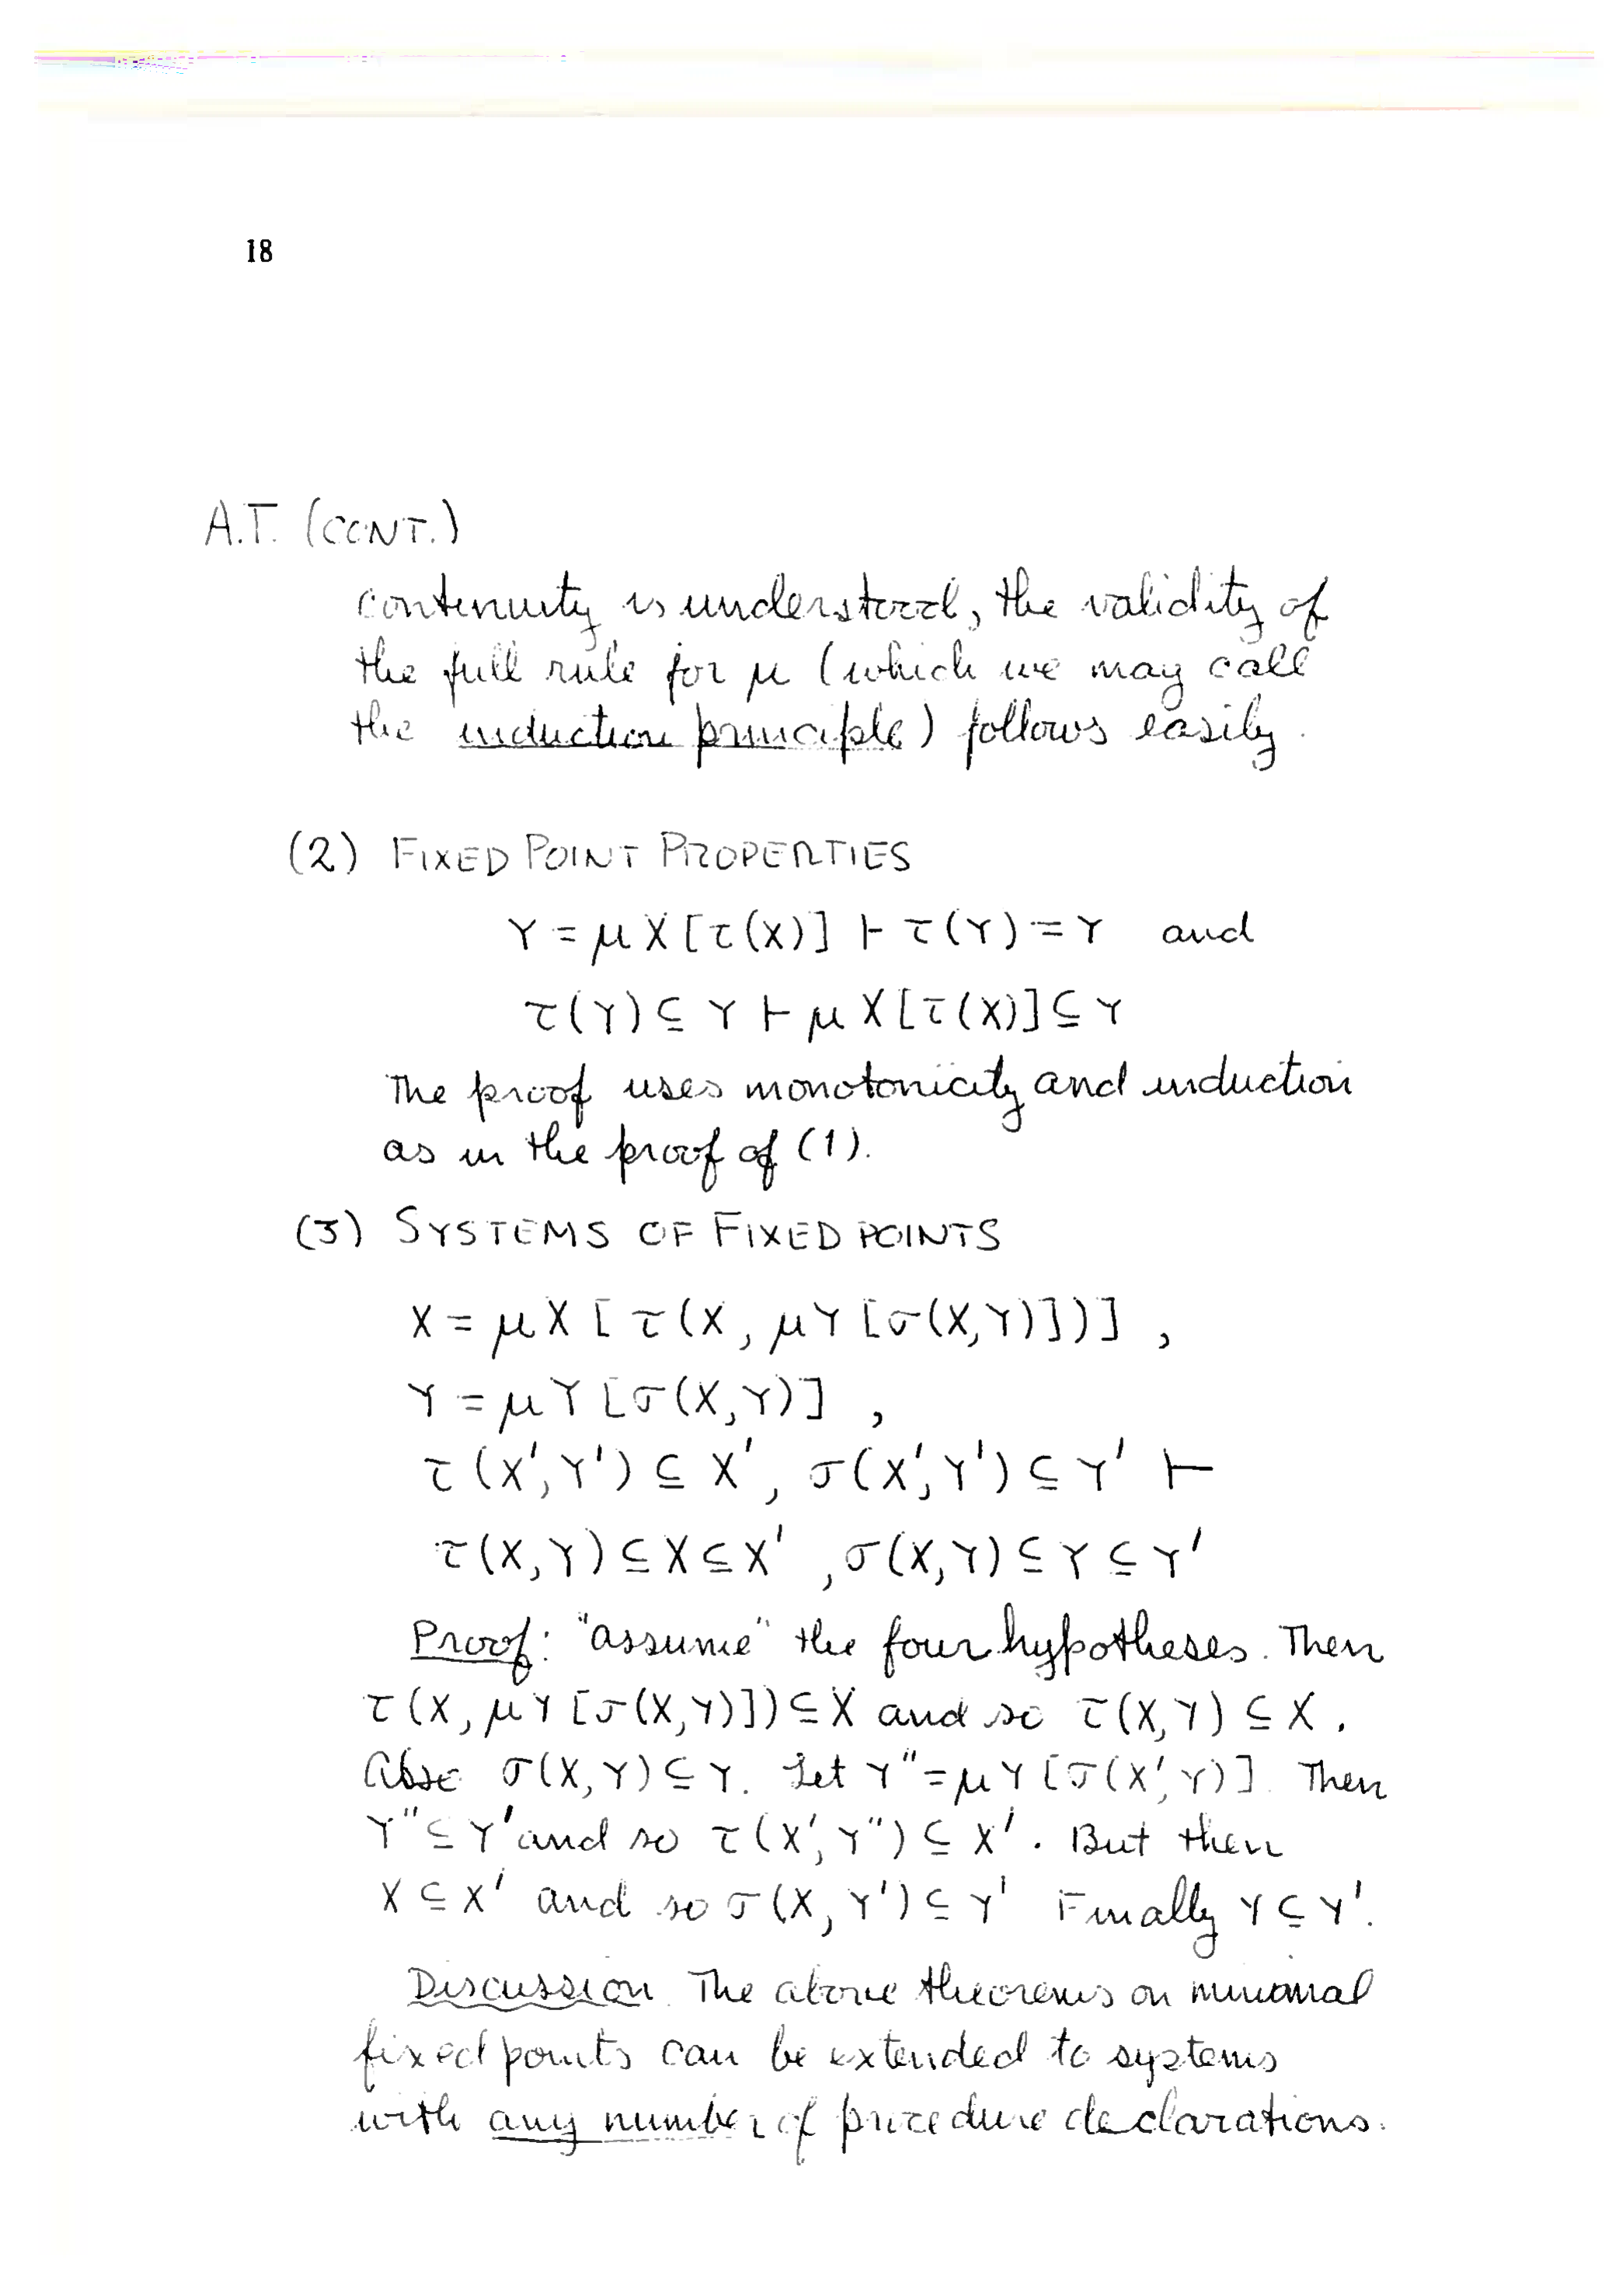 18
A.T. (CONT.)
continuity is understood, the validity of
the full rule for μ (which we may call
the induction principle) follows easily.
(2) FIXED POINT PROPERTIES
Y = μX[τ(X)] ⊢ τ(Y) = Y and
τ(Y) ⊆ Y ⊢ μX[τ(X)] ⊆ Y
The proof uses monotonicity and induction
as in the proof of (1).
(3) SYSTEMS OF FIXED POINTS
X = μX[τ(X, μY[σ(X,Y)])] ,
Y = μY[σ(X,Y)] ,
τ(X',Y') ⊆ X', σ(X',Y') ⊆ Y' ⊢
τ(X,Y) ⊆ X ⊆ X' , σ(X,Y) ⊆ Y ⊆ Y'
Proof: "assume" the four hypotheses. Then
τ(X, μY[σ(X,Y)]) ⊆ X and so τ(X,Y) ⊆ X.
Also σ(X,Y) ⊆ Y. Let Y" = μY[σ(X',Y)]. Then
Y" ⊆ Y' and so τ(X',Y") ⊆ X'. But then
X ⊆ X' and so σ(X,Y') ⊆ Y' Finally Y ⊆ Y'.
Discussion. The above theorems on minimal
fixed points can be extended to systems
with any number of procedure declarations.